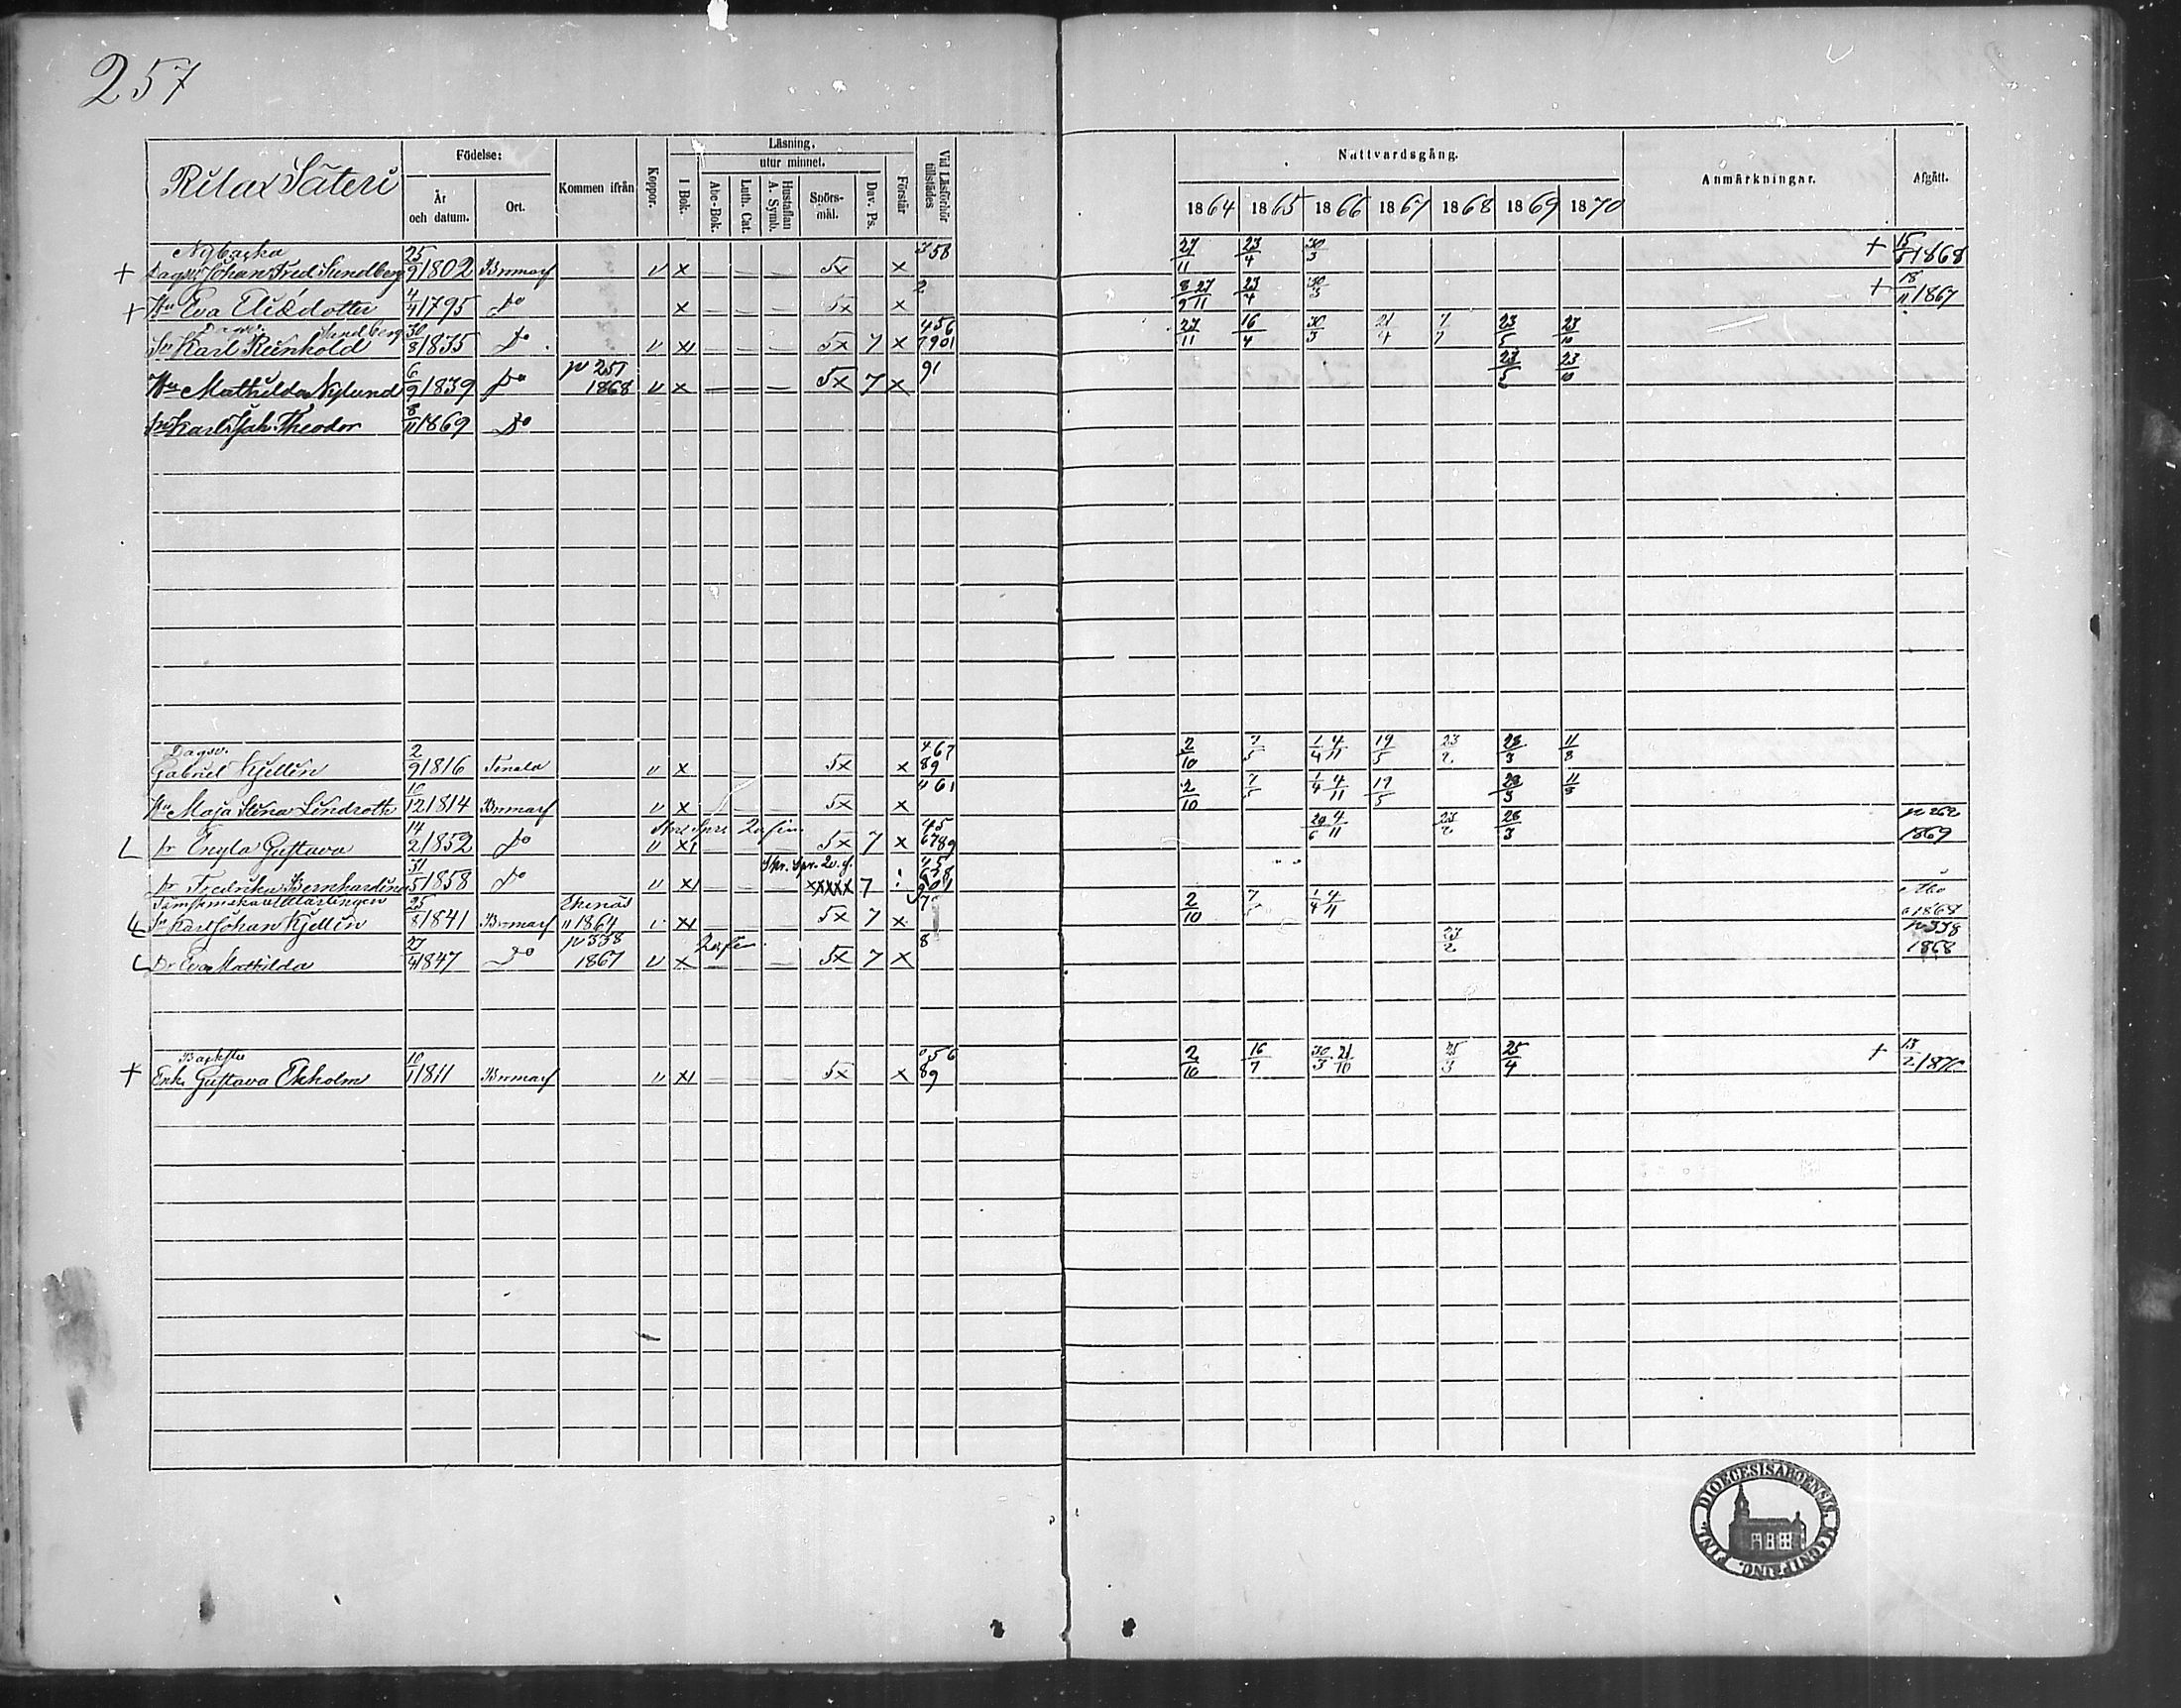 257
Rilax Säteri
Födelse:
År och datum.
Ort.
Kommen ifrån
Koppor.
Läsning.
I Bok.
utur minnet.
Abc-Bok.
Luth. Cat.
Hustaflan A. Symb.
Spörs-mål.
Dav. Ps.
Förstår
Vid Läsförhör tillstädes
Nattvardsgång.
1864 1865 1866 1867 1868 1869 1870
Anmärkningar.
Afgått.
Nybacka 25 358 27 23 30 15
+ Dagsv Johan Fred Sundberg 9 1802 Bromarf v x 5x x 11 4 3 + 1868
4 2 8 27 23 30 18
+ Hu Eva Elisdotter 1795 Do x 5x x 9 11 4 3 + 11 1867
Dagsv. Sundberg 30 456 27 16 30 21 7 23 23
Sn Karl Reinhold 8 1835 Do v x 5x 7 x 7901 11 4 3 4 7 5 10
6 p 257 91 23 23
Hu Mathilda Nylund 9 1839 Do 1868 v x 5x 7 x 5 10
8
Sn Karl Joh. Theodor 11 1869 Do
Dagsv. 2 467 2 7 1 4 19 23 28 11
Gabriel Kjellin 9 1816 Tenala v x 5x x 89 10 5 4 11 5 2 3 8
10 461 2 7 1 4 19 28 11
Hu Maja Stina Lindroth 12 1814 Bromarf v x 5x x 10 5 4 11 5 3
14 45 4 23 28 p 262
Dr Engla Gustava 2 1852 Do v x 5x 7 x 6789 6 11 2 3 1869
31 Skr. Spr. 2v. f.
Dr Fredrika Bernhardina 5 1858 Do v x xxxxx 7
25 Ekenäs 2 7 1 4 Åbo
Sn Karl Johan Kjellin 8 1841 Bromarf 1864 x 5x 7 x 10 5 4 11 1868
27 p 338 8 23 p 338
Dr Eva Mathilda 1847 Do 1867 v x 5x 7 x 2 1868
Backstu 10 56 2 16 30 21 25 25 13
+ Enk. Gustava Ekholm 1 1811 Bromarf v x 5x x 89 10 7 3 10 3 4 + 2 1870
FINL. DIOECESIS ABOENSIS MAGNI PRINC.